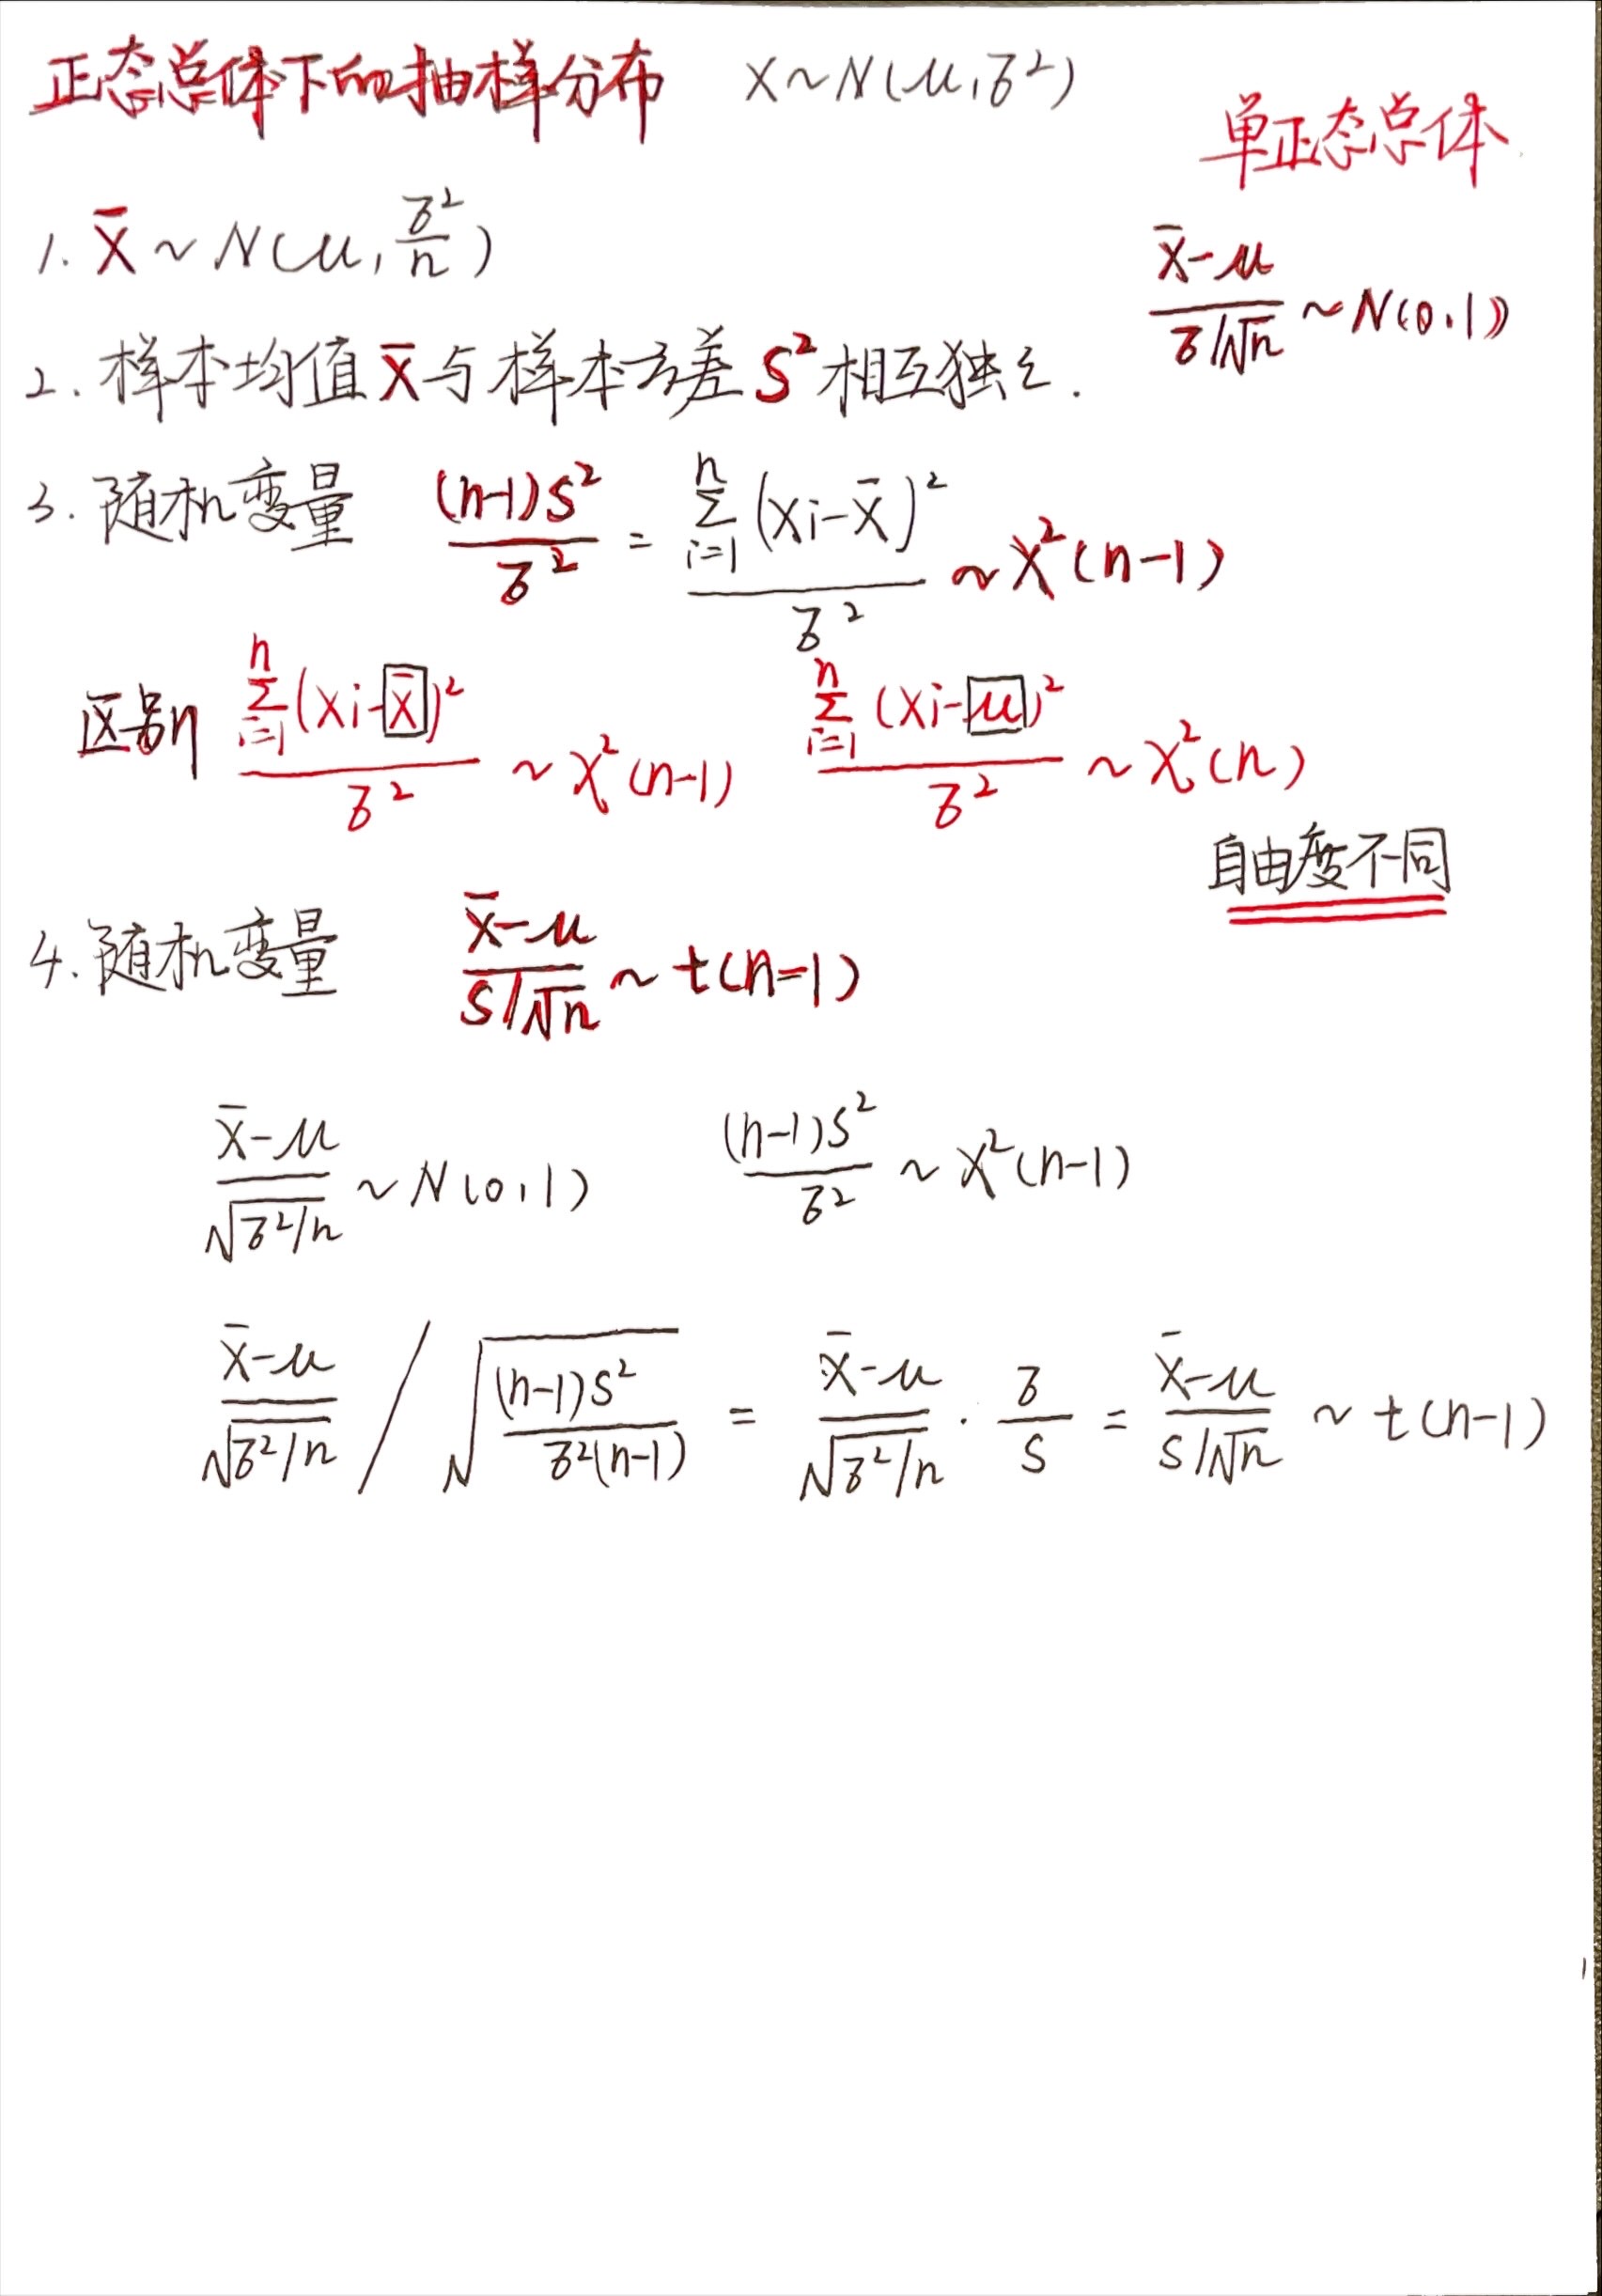 正态总体下的抽样分布 X~N(μ,σ²)
单正态总体
1. X̄ ~ N(μ, σ²/n)
(X̄-μ)/(σ/√n) ~ N(0,1)
2. 样本均值 X̄ 与样本方差 S² 相互独立.
3. 随机变量 (n-1)S²/σ² = ∑ᵢ₌₁ⁿ(Xi-X̄)²/σ² ~ χ²(n-1)
区别 ∑ᵢ₌₁ⁿ(Xi-X̄)²/σ² ~ χ²(n-1) ∑ᵢ₌₁ⁿ(Xi-μ)²/σ² ~ χ²(n)
自由度不同
4. 随机变量 (X̄-μ)/(S/√n) ~ t(n-1)
(X̄-μ)/√(σ²/n) ~ N(0,1) (n-1)S²/σ² ~ χ²(n-1)
(X̄-μ)/√(σ²/n) / √((n-1)S²/σ²(n-1)) = (X̄-μ)/√(σ²/n) · σ/S = (X̄-μ)/(S/√n) ~ t(n-1)